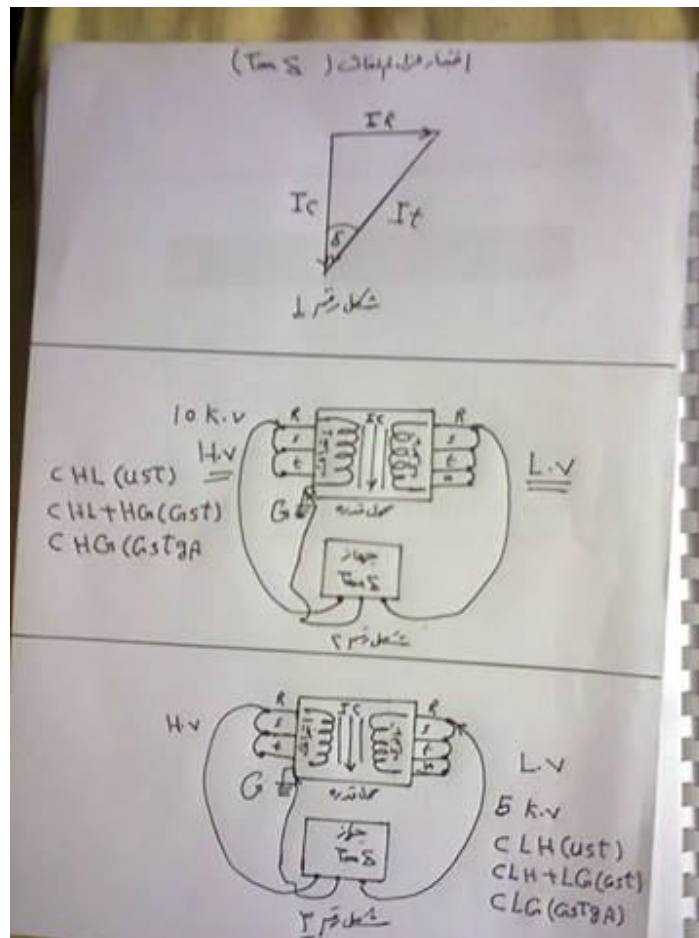 اختبار عزل الملفات (Tan δ)
IR
Ic
It
δ
شكل رقم 1
10 k.v
H.v
CHL (UST)
CHL + HG (GST)
CHG (GSTgA
R
s
t
Ic
R
s
t
n
L.v
G
محول قدره
جهاز
Tan δ
شكل رقم ٢
H.v
R
s
t
Ic
R
s
t
n
G
محول قدره
جهاز
Tan δ
L.v
5 k.v
CLH (UST)
CLH + LG (GST)
CLG (GSTgA)
شكل رقم ٣